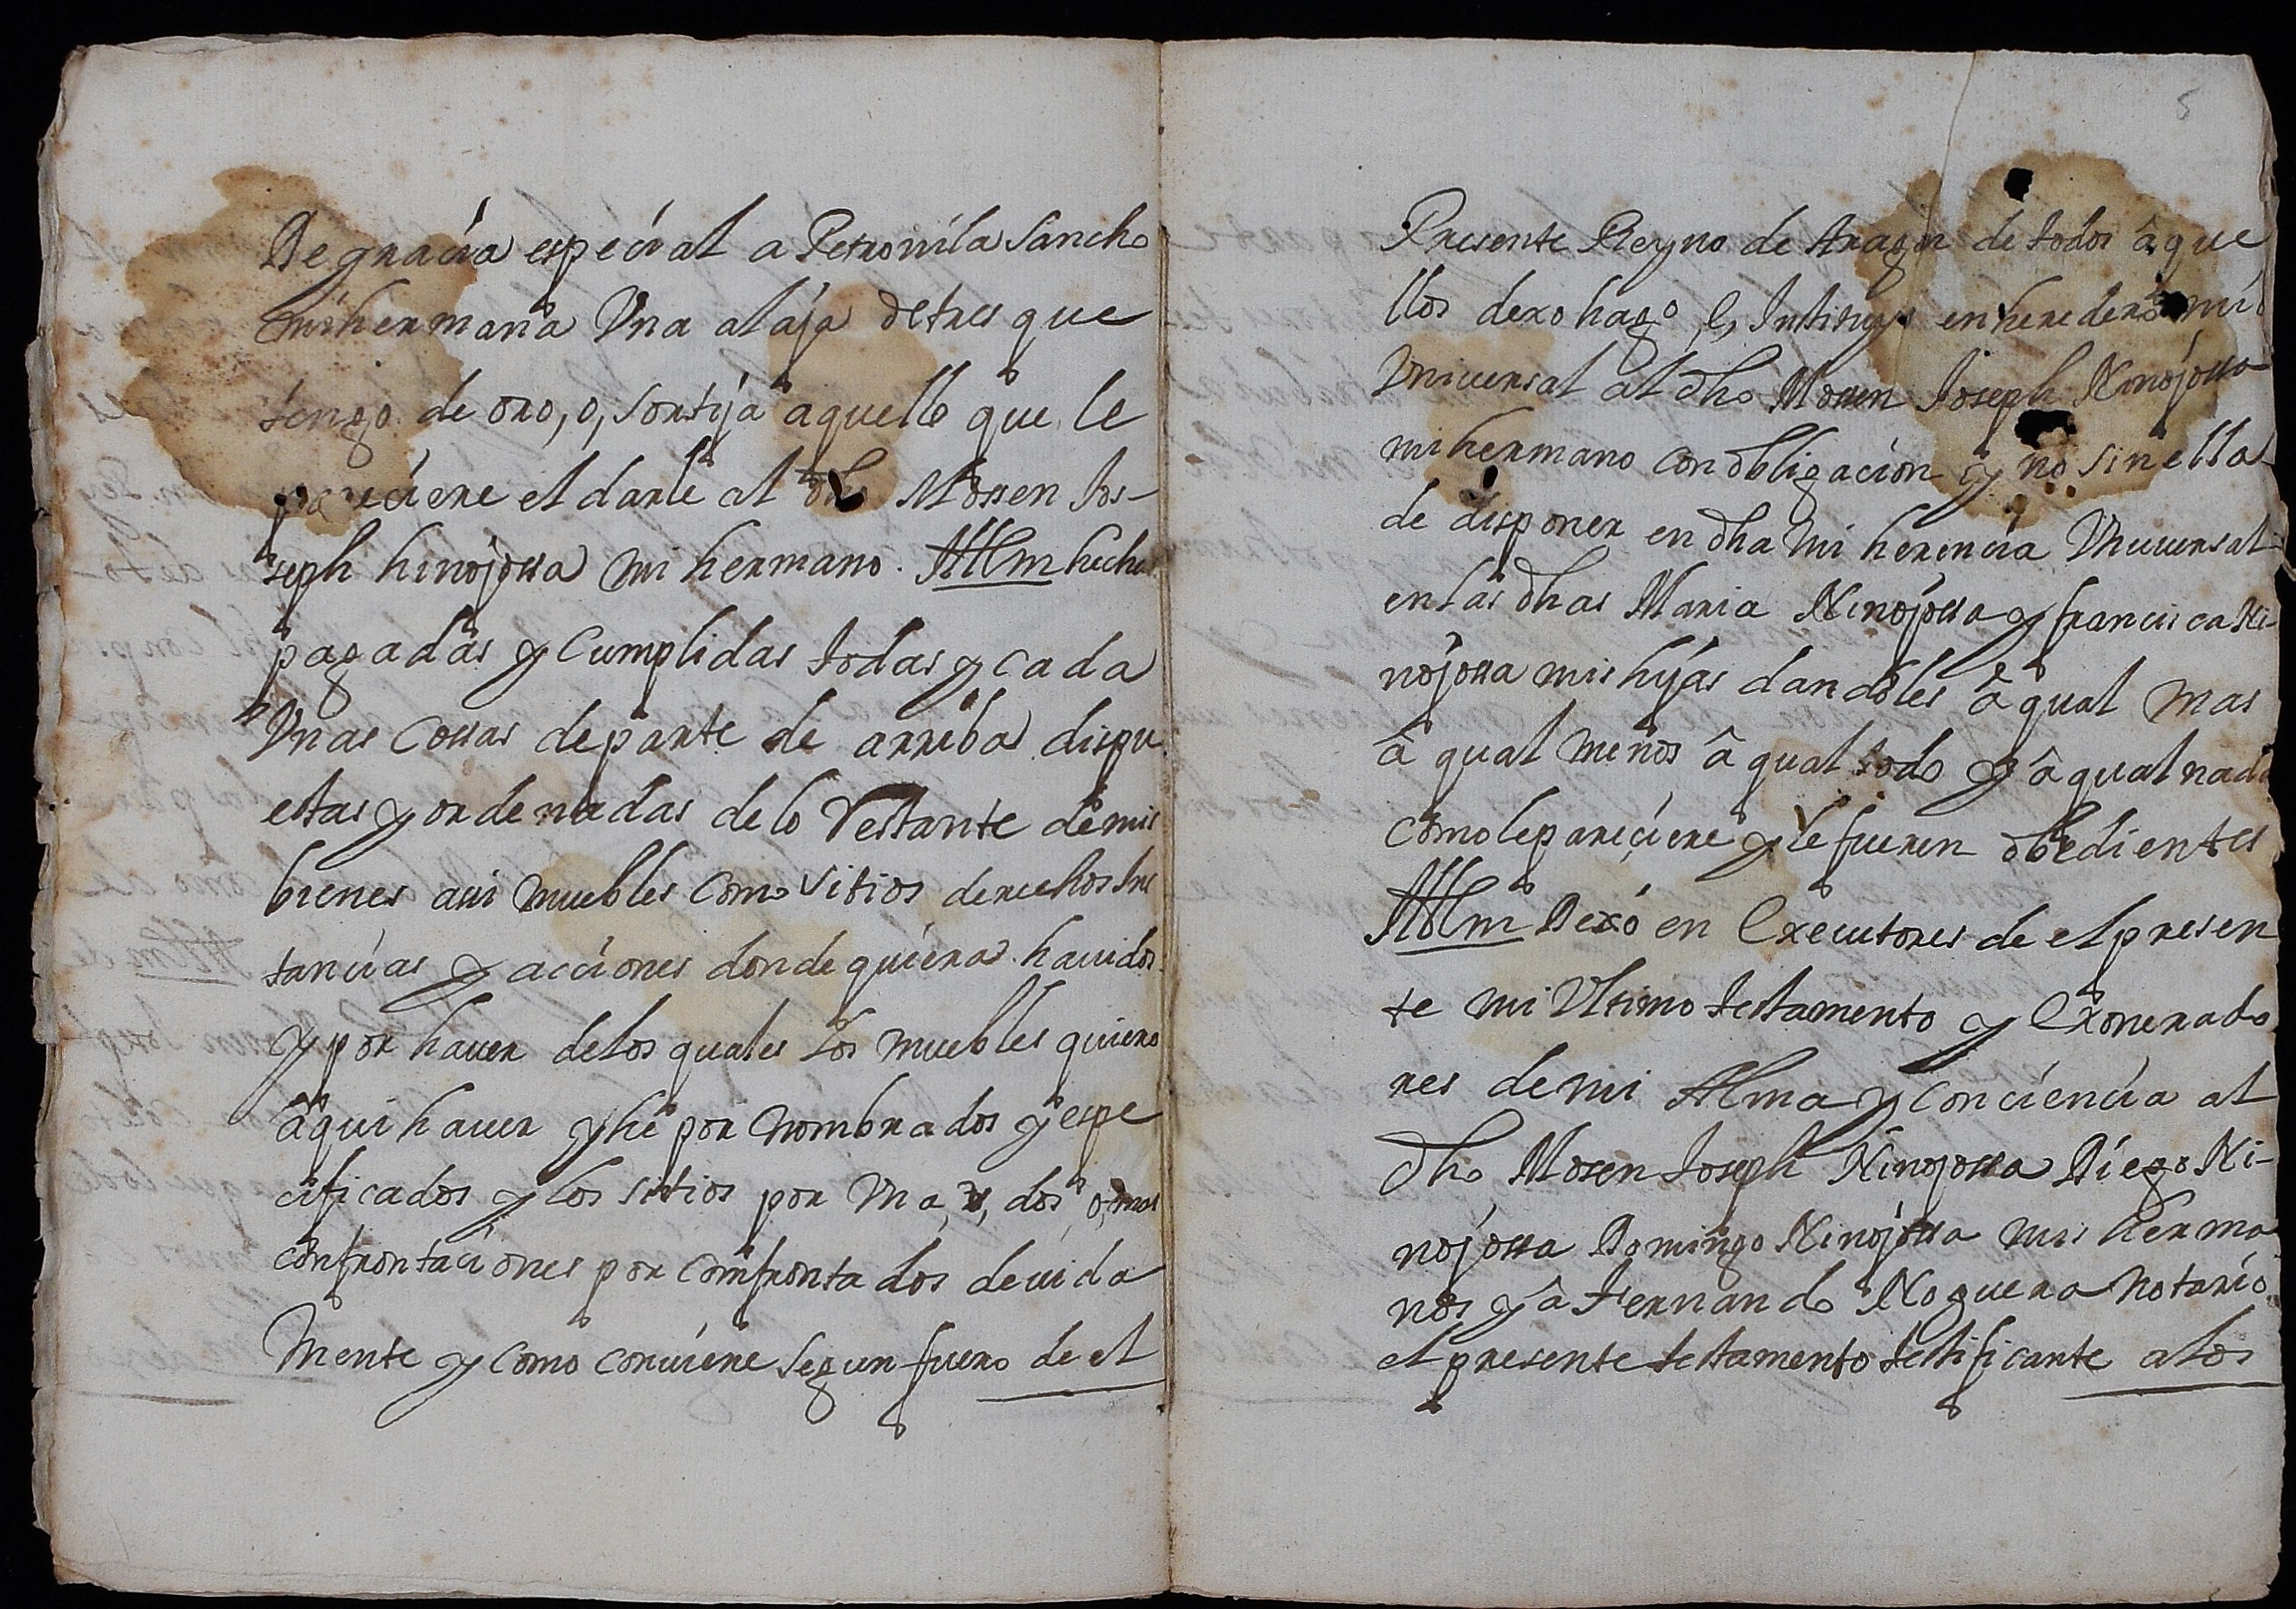 De gracia especial a Petronila Sancho
mi hermana Vna alaja de tres que
tengo de oro, o, sortija aquella que le
pareciere el darle al dho Mossen Jos-
seph hinojossa mi hermano. Ittem hechas
pagadas y Cumplidas todas y cada
Vnas Cossas de parte de arriba dispu
estas y ordenadas de lo restante de mis
bienes assi muebles como sitios derechos Ins
tancias y acciones donde quiera hauidos
y por hauer de los quales los muebles quiero
aqui hauer y he por nombrados y espe
cificados y los sitios por Vna, v, dos o, mas
confrontaciones por comfrontados deuida
Mente y como conuiene segun fuero de el
5
Presente Reyno de Aragon de todos aque
llos dexo hago e, Instituyo en heredero mio
Vniuersal al dho Mossen Joseph Hinojossa
mi hermano con obligacion y no sin ella
de disponer en dha mi herencia Vniuersal
en las dhas Maria Hinojossa y francisca Hi-
nojossa mis hijas dandoles a qual mas
a qual menos a qual todo y a qual nada
como le pareciere y le fueren obedientes
Ittem Dexo en Executores de el presen
te mi Vltimo testamento y Exonerado
res de mi Alma y conciencia al
dho Mosen Joseph Hinojossa Diego Hi-
nojossa Domingo Hinojossa mis herma
nos y a Fernando Noguera notario
el presente testamento testificante a los